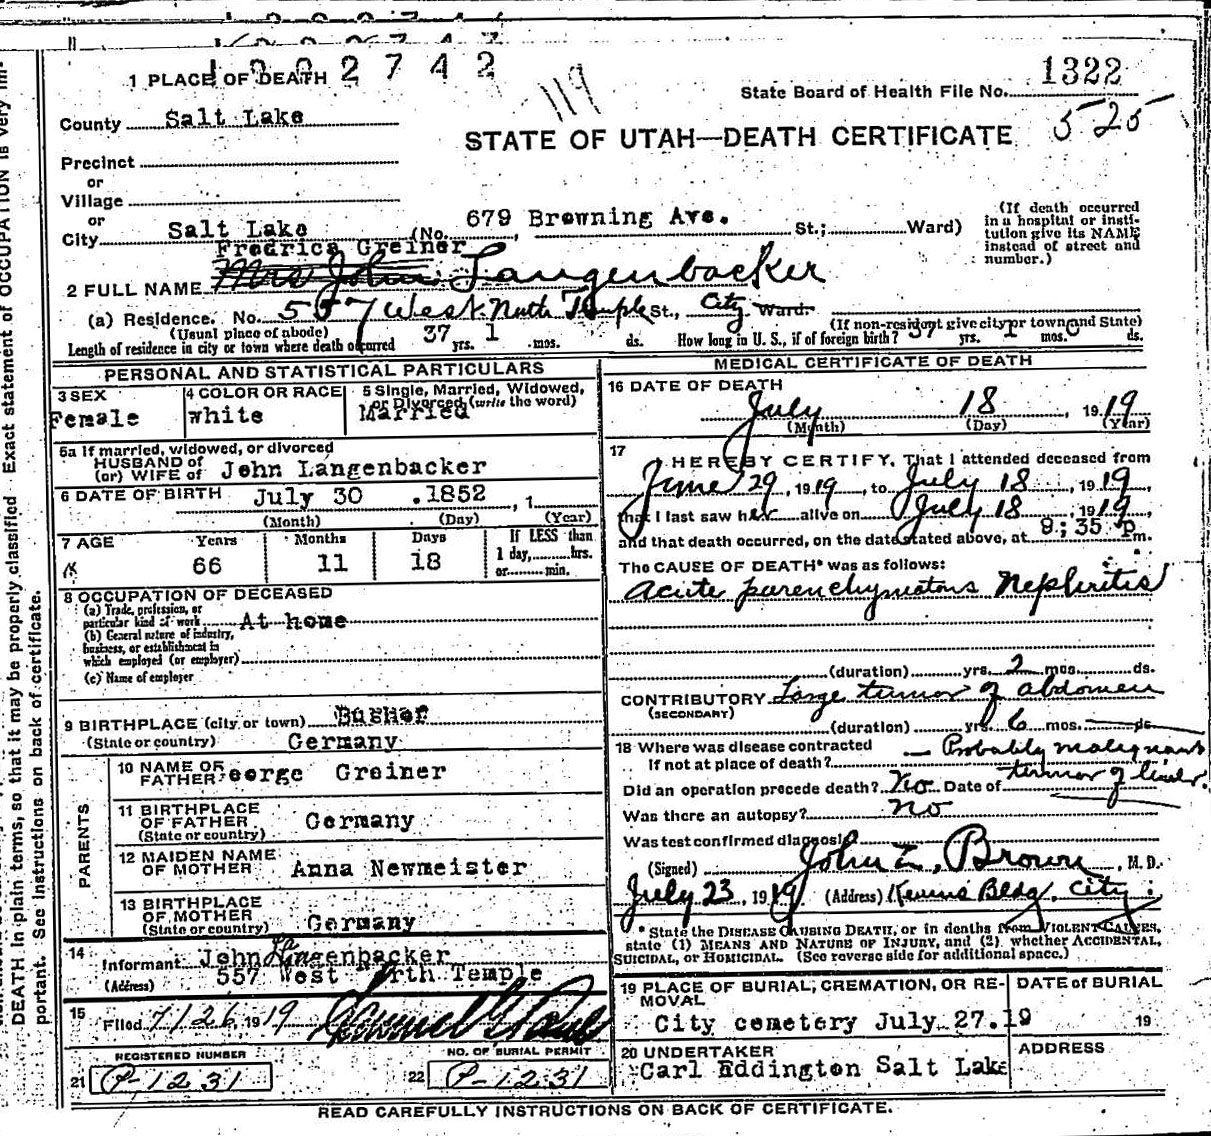 1 PLACE OF DEATH 1002742
119
State Board of Health File No. 1322
525
County Salt Lake
STATE OF UTAH—DEATH CERTIFICATE
Precinct
or
Village
or
City Salt Lake (No. 679 Browning Ave. St.; Ward)
(If death occurred in a hospital or insti-
tution give its NAME
instead of street and
number.)
Fredrica Greiner
2 FULL NAME Mrs John Langenbacker
(a) Residence. No. 557 West North Temple St., City Ward.
(Usual place of abode) (If non-resident give city or town and State)
Length of residence in city or town where death occurred 37 yrs. 1 mos. ds. How long in U. S., if of foreign birth? 37 yrs. 1 mos. 0 ds.
PERSONAL AND STATISTICAL PARTICULARS
3 SEX Female
4 COLOR OR RACE white
5 Single, Married, Widowed, or Divorced (write the word) Married
5a If married, widowed, or divorced
HUSBAND of
(or) WIFE of John Langenbacker
6 DATE OF BIRTH July 30 .1852, 1
(Month) (Day) (Year)
7 AGE Years Months Days If LESS than
66 11 18 1 day, hrs.
or min.
8 OCCUPATION OF DECEASED
(a) Trade, profession, or
particular kind of work At home
(b) General nature of industry,
business, or establishment in
which employed (or employer)
(c) Name of employer
9 BIRTHPLACE (city or town)
(State or country) Germany
PARENTS
10 NAME OF
FATHER George Greiner
11 BIRTHPLACE
OF FATHER Germany
(State or country)
12 MAIDEN NAME
OF MOTHER Anna Newmeister
13 BIRTHPLACE
OF MOTHER
(State or country) Germany
14 Informant John Langenbacker
(Address) 557 West North Temple
15 Filed 7/26 1919
REGISTERED NUMBER NO. OF BURIAL PERMIT
21 P-1231 22 P-1231
MEDICAL CERTIFICATE OF DEATH
16 DATE OF DEATH
July 18, 1919
(Month) (Day) (Year)
17 I HEREBY CERTIFY, That I attended deceased from
June 29, 1919, to July 18, 1919,
that I last saw her alive on July 18, 1919,
and that death occurred, on the date stated above, at 8:35 Pm.
The CAUSE OF DEATH* was as follows:
Acute parenchymatous Nephritis
(duration) yrs. 2 mos. ds.
CONTRIBUTORY Large tumor of abdomen
(SECONDARY)
(duration) yrs. 6 mos. ds.
18 Where was disease contracted — Probably malignant
If not at place of death? tumor of liver.
Did an operation precede death? No. Date of
Was there an autopsy? No
Was test confirmed diagnosis?
(Signed) John Z. Brown, M. D.
July 23, 1919 (Address) Kearns Bldg, City.
* State the DISEASE CAUSING DEATH, or in deaths from VIOLENT CAUSES,
state (1) MEANS AND NATURE OF INJURY, and (2) whether ACCIDENTAL,
SUICIDAL, or HOMICIDAL. (See reverse side for additional space.)
19 PLACE OF BURIAL, CREMATION, OR RE-
MOVAL DATE of BURIAL
City cemetery July 27.19 19
20 UNDERTAKER ADDRESS
Carl Eddington Salt Lake
READ CAREFULLY INSTRUCTIONS ON BACK OF CERTIFICATE.
DEATH in plain terms, so that it may be properly classified. Exact statement of OCCUPATION is very im-
portant. See instructions on back of certificate.